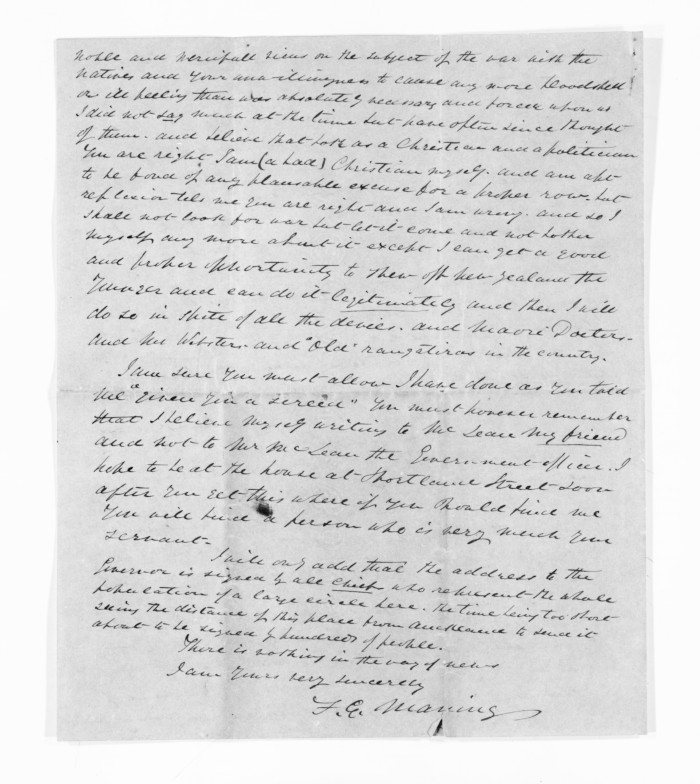 noble and mercifull views on the subject of the war with the
natives and your unwillingness to cause any more bloodshed
or ill feeling than was absolutely necessary and forced upon us
I did not say much at the time but have often since thought
of them. and believe that both as a Christian and a politician
You are right I am (a bad) Christian myself. and am apt
to be fond of any plausable excuse for a proper row. but
reflexion tells me you are right and I am wrong. and so I
shall not look for war but let it come and not bother
myself any more about it except I can get a good
and proper opportunity to shew off New Zealand the
Younger and can do it legitimately and then I will
do so in spite of all the devils. and Maori Doctors.
and Mr Websters. and "Old" rangatiras in the country.
I am sure you must allow I have done as you told
me "given you a screed" You must however remember
that I believe myself writing to McLean my friend
and not to Mr McLean the Government officer. I
hope to be at the house at Shortland Street soon
after you get this where if you should find me
You will find a person who is very much your
servant.
I will only add that the address to the
Governor is signed by all chiefs who represent the whole
population of a large circle here. the time being too short
seeing the distance of this place from Auckland to send it
about to be signed by hundreds of people.
There is nothing in the way of news
I am Yours very sincerely
F. E. Maning